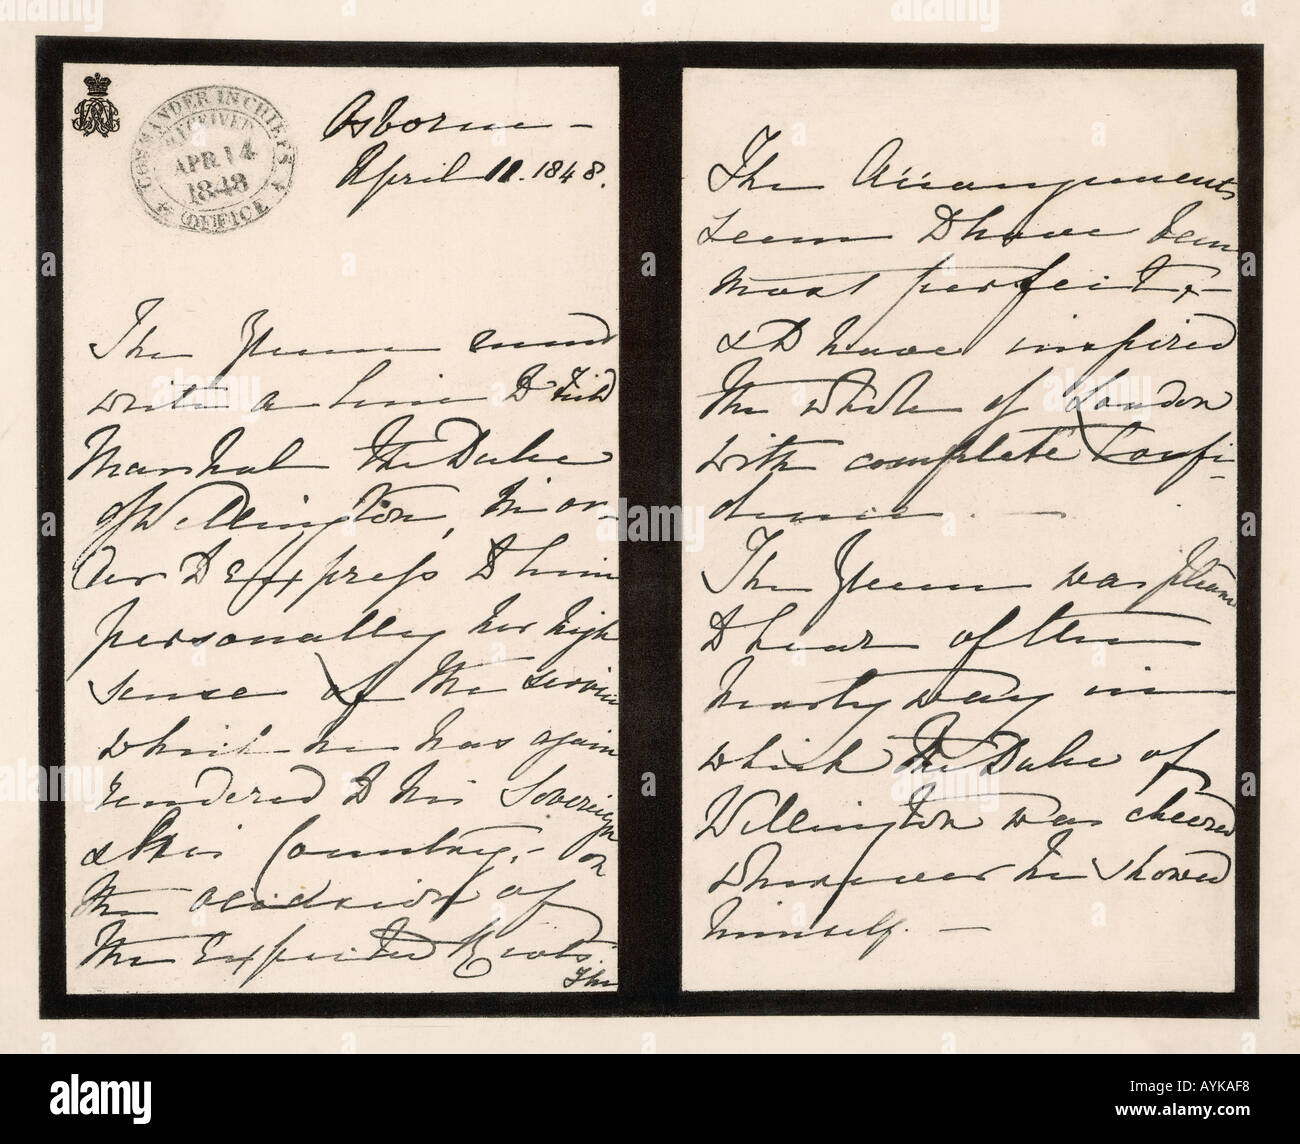 COMMANDER IN CHIEF'S
RECEIVED
APR 14
1848
OFFICE
Osborne –
April 11. 1848.
The Queen must
write a line to Field
Marshal the Duke
of Wellington, in or-
der to express to him
personally her high
sense of the service
which he has again
rendered to his Sovereign
& this Country, – on
the occasion of
the expected Riots.
The
The Arrangements
seem to have been
most perfect, –
& to have inspired
the whole of London
with complete Confi-
dence. –
The Queen was pleased
to hear of the
hearty way in
which the Duke of
Wellington was cheered
whenever he showed
himself. –
alamy
alamy
alamy
Image ID: AYKAF8
www.alamy.com